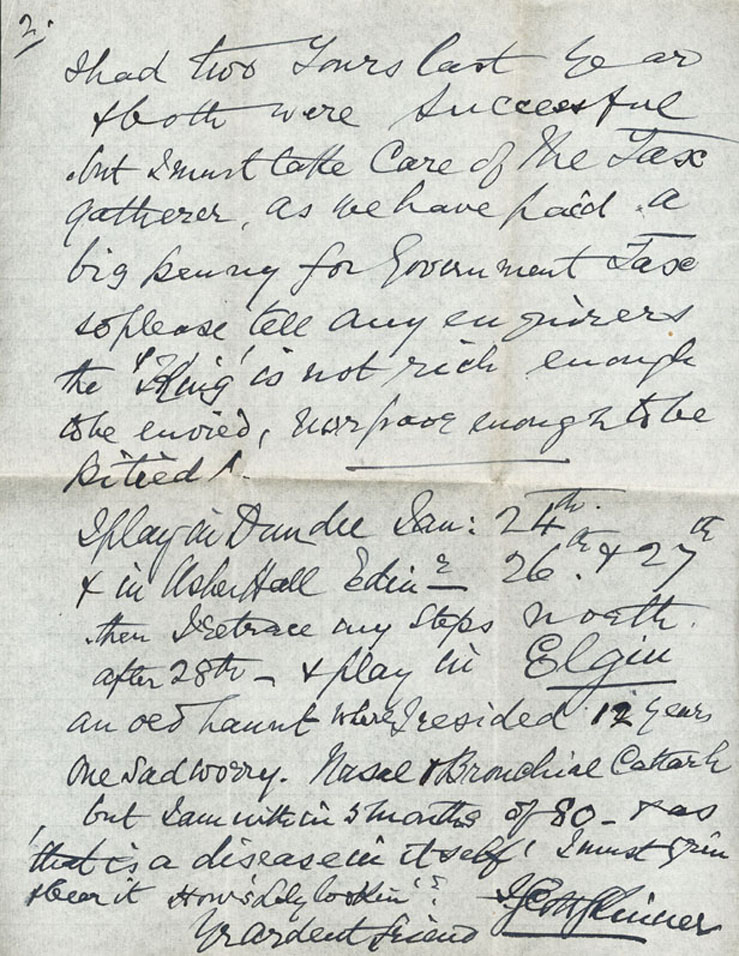 2.
I had two Tours last Year
& both were Successful
but I must take Care of the Tax
gatherer, as we have paid a
big penny for Government Tax
so please tell any enquirers
the "King" is not rich enough
to be envied, nor poor enough to be
pitied!
I play in Dundee Jan: 24th.
& in Usher Hall Edinr 26th. & 27th
then I retrace my Steps north.
after 28th – & play in Elgin
an old haunt where I resided 12 years
One Sad worry. Nasal & Bronchial Cattarh
but I am within 5 months of 80 – & as
'that is a disease in itself' I must grin
& bear it How's Lily lookin'?
Yr ardent friend J. Scott Skinner